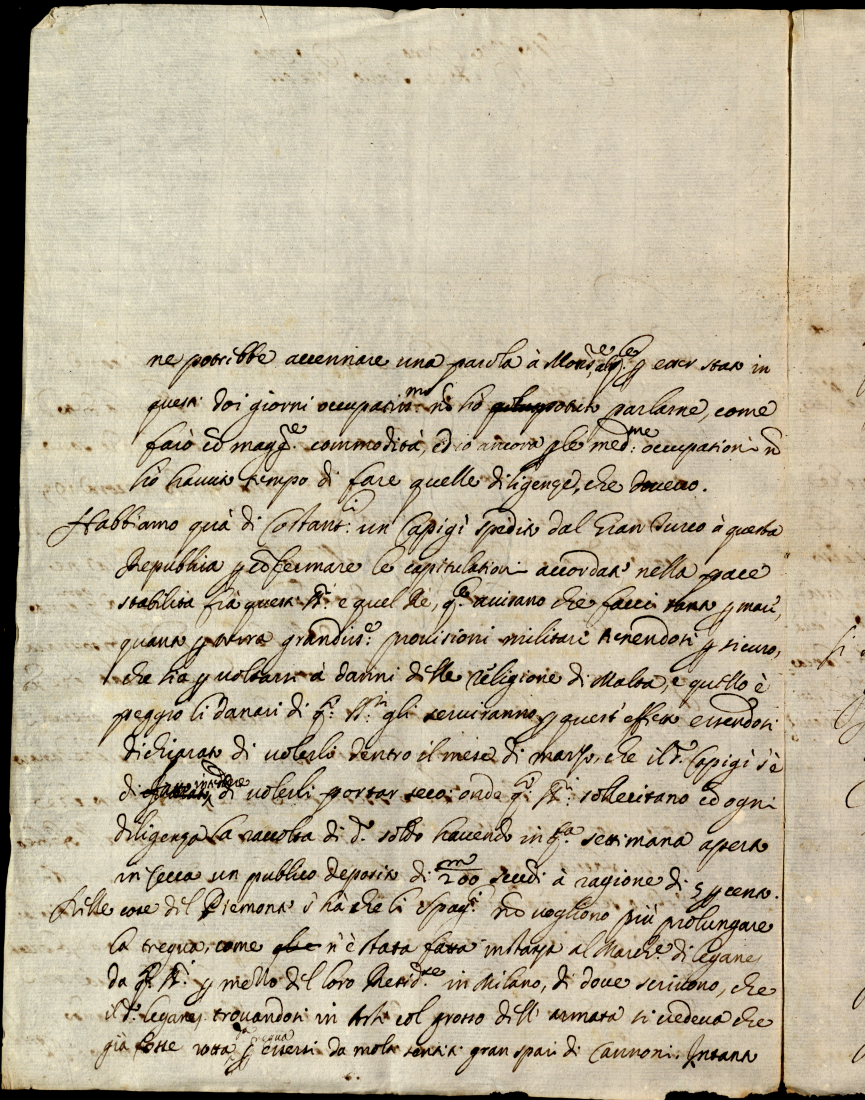 ne potrebbe accennare una parola à Mons.re p esser stato in
questi doi giorni occupatiss.mo nõ hò potuto parlarne, come
farò cõ magg.e commodità, ed io ancora p le med.me occupationi nõ
hò havuto tempo di fare quelle diligenze, che dovevo.
Habbiamo quà di Costant.li un Capigì spedito dal Gran Turco à questa
Republica p cõfermare le capitulationi accordate nella pace
stabilita frà questi SS.ri e quel Re, q.le avisano che facci tanto p mare,
quanto p terra grandiss.e provisioni militari tenendosi p sicuro,
che sia p voltarsi à danni delle religione di Malta, e quello è
peggio li danari di q.ti SS.ri gli serviranno p quest' effetto essendosi
dichiarato di volerli dentro il mese di marzo, che il d.o Capigì s'è
di intendere di volerli portar seco; onde q.ti SS.ri sollecitano cõ ogni
diligenza la raccolta di d.o soldo havendo in q.ta settimana aperto
in Zecca un publico deposito di m/200 scudi à ragione di 5 p cento.
Delle cose del Piemonte s'hà che li Spag.li nõ vogliono più prolungare
la tregua, come n'è stata fatta instanza al March.e di Leganes
da q.ti SS.ri p mezzo del loro Resid.te in Milano, di dove scrivono, che
il d.o Leganes trovandosi in Asti col grosso dell' armata si credeva che
già fosse rotta la tregua p essersi da molti sentiti gran spari di Cannoni. Intanto